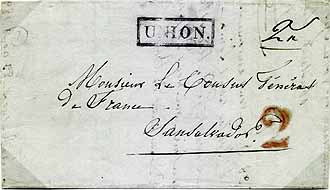 U.HON.
2 R
Monsieur Le Consul Général
de France
Sansalvador.
2